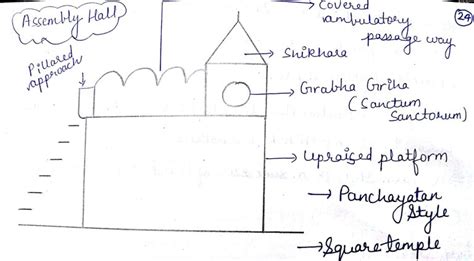 Assembly Hall
Pillared
approach
Covered
ambulatory
passage way
24
Shikhara
Grabha Griha
(Sanctum
Sanctorum)
Upraised platform
Panchayatan
Style
Square temple